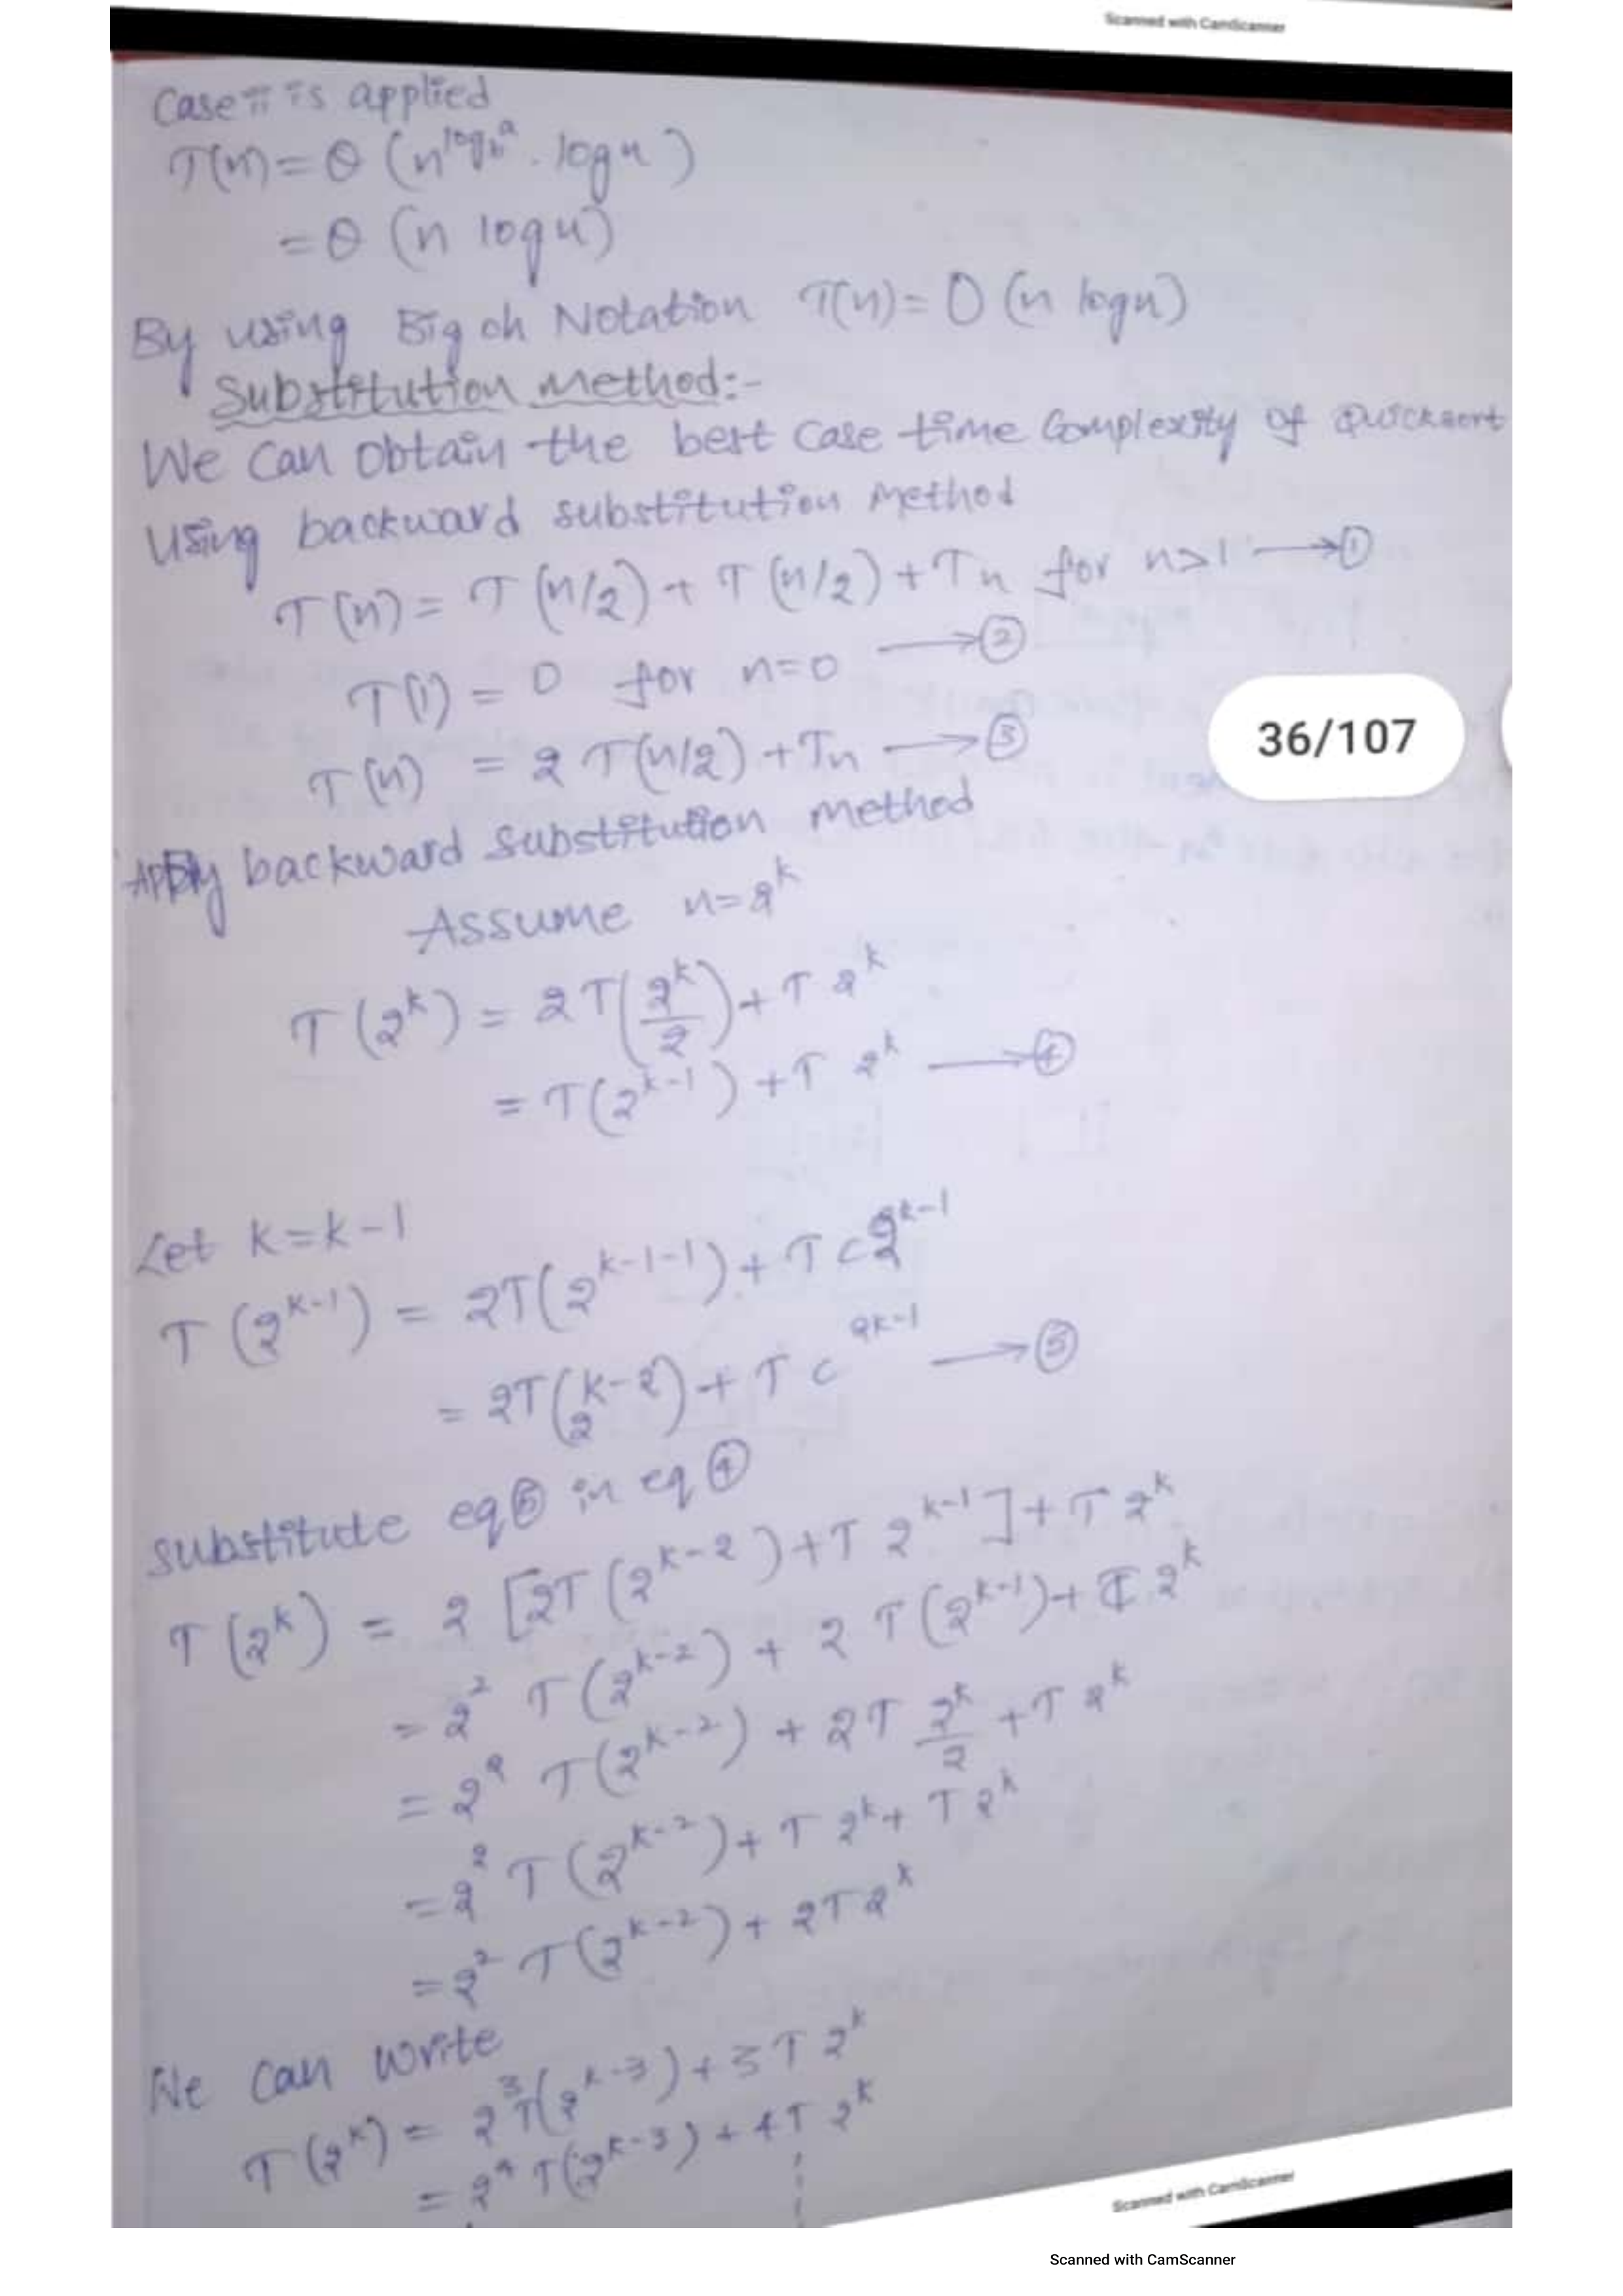 Scanned with CamScanner
Case ii is applied
T(n) = θ (n^log_b^a . log n)
= θ (n log n)
By using Big oh Notation T(n) = O (n log n)
Substitution Method:-
We Can Obtain the best Case time Complexity of Quicksort
Using backward substitution Method
T(n) = T(n/2) + T(n/2) + Tn for n>1 → ①
T(1) = 0 for n=0 → ②
T(n) = 2 T(n/2) + Tn → ③
36/107
Apply backward substitution method
Assume n=2^k
T(2^k) = 2T(2^k/2) + T 2^k
= T(2^k-1) + T 2^k → ④
Let k=k-1
T(2^k-1) = 2T(2^k-1-1) + T c2^k-1
= 2T(2^k-2) + T c^2k-1 → ⑤
Substitute eq⑤ in eq④
T(2^k) = 2 [2T(2^k-2) + T 2^k-1] + T 2^k
= 2^2 T(2^k-2) + 2 T(2^k-1) + T. 2^k
= 2^2 T(2^k-2) + 2T 2^k/2 + T 2^k
= 2^2 T(2^k-2) + T 2^k + T 2^k
= 2^2 T(2^k-2) + 2T 2^k
We Can write
T(2^k) = 2^3 T(2^k-3) + 3T 2^k
= 2^4 T(2^k-3) + 4T 2^k
Scanned with CamScanner
Scanned with CamScanner